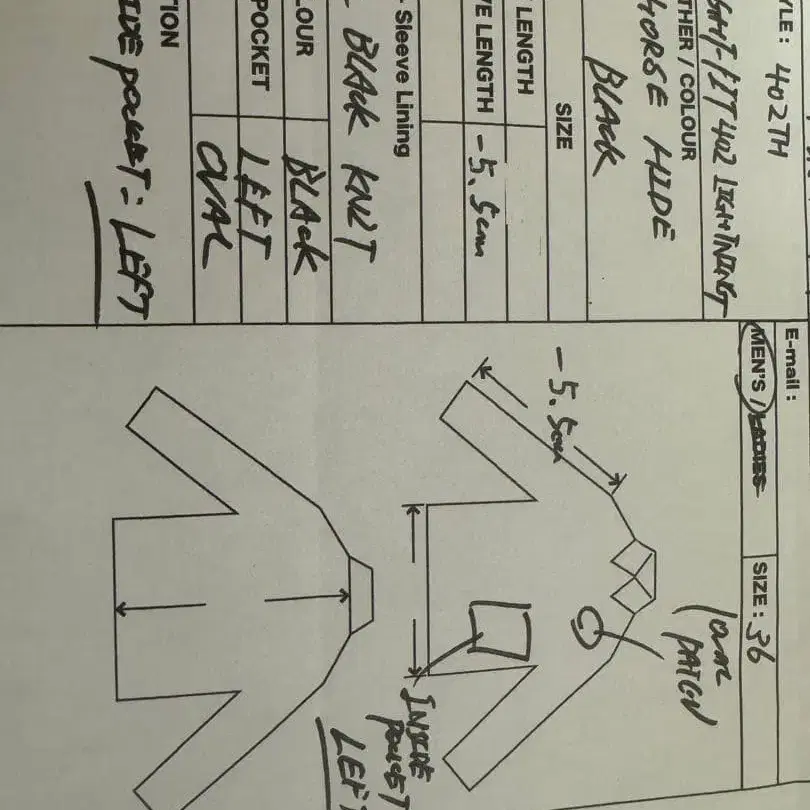 YLE: 402TH
GHT-FIT 402 LIGHTNING
THER / COLOUR
HORSE HIDE
BLACK
SIZE
LENGTH
VE LENGTH -5.5cm
- Sleeve Lining
BLACK KNIT
LOUR BLACK
POCKET LEFT
OVAL
TION
IDE POCKET: LEFT
E-mail :
MEN'S / LADIES
SIZE : 36
OVAL
PATCH
-5.5cm
INSIDE
POCKET
LEFT